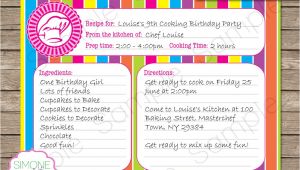 Recipe for: Louise's 9th Cooking Birthday Party
From the kitchen of: Chef Louise
Prep time: 2:00 - 4:00pm Cooking Time: 2 hours
Ingredients:
One Birthday Girl
Lots of friends
Cupcakes to Bake
Cupcakes to Decorate
Ingredients
Sprinkles
Chocolate
Directions:
Get ready to cook on Friday 25
June at 2:00pm
Come to Louise's Kitchen at 100
Baking Street, Masterchef
Town, NY 54321
Get ready to mix up some fun!
SIMONE